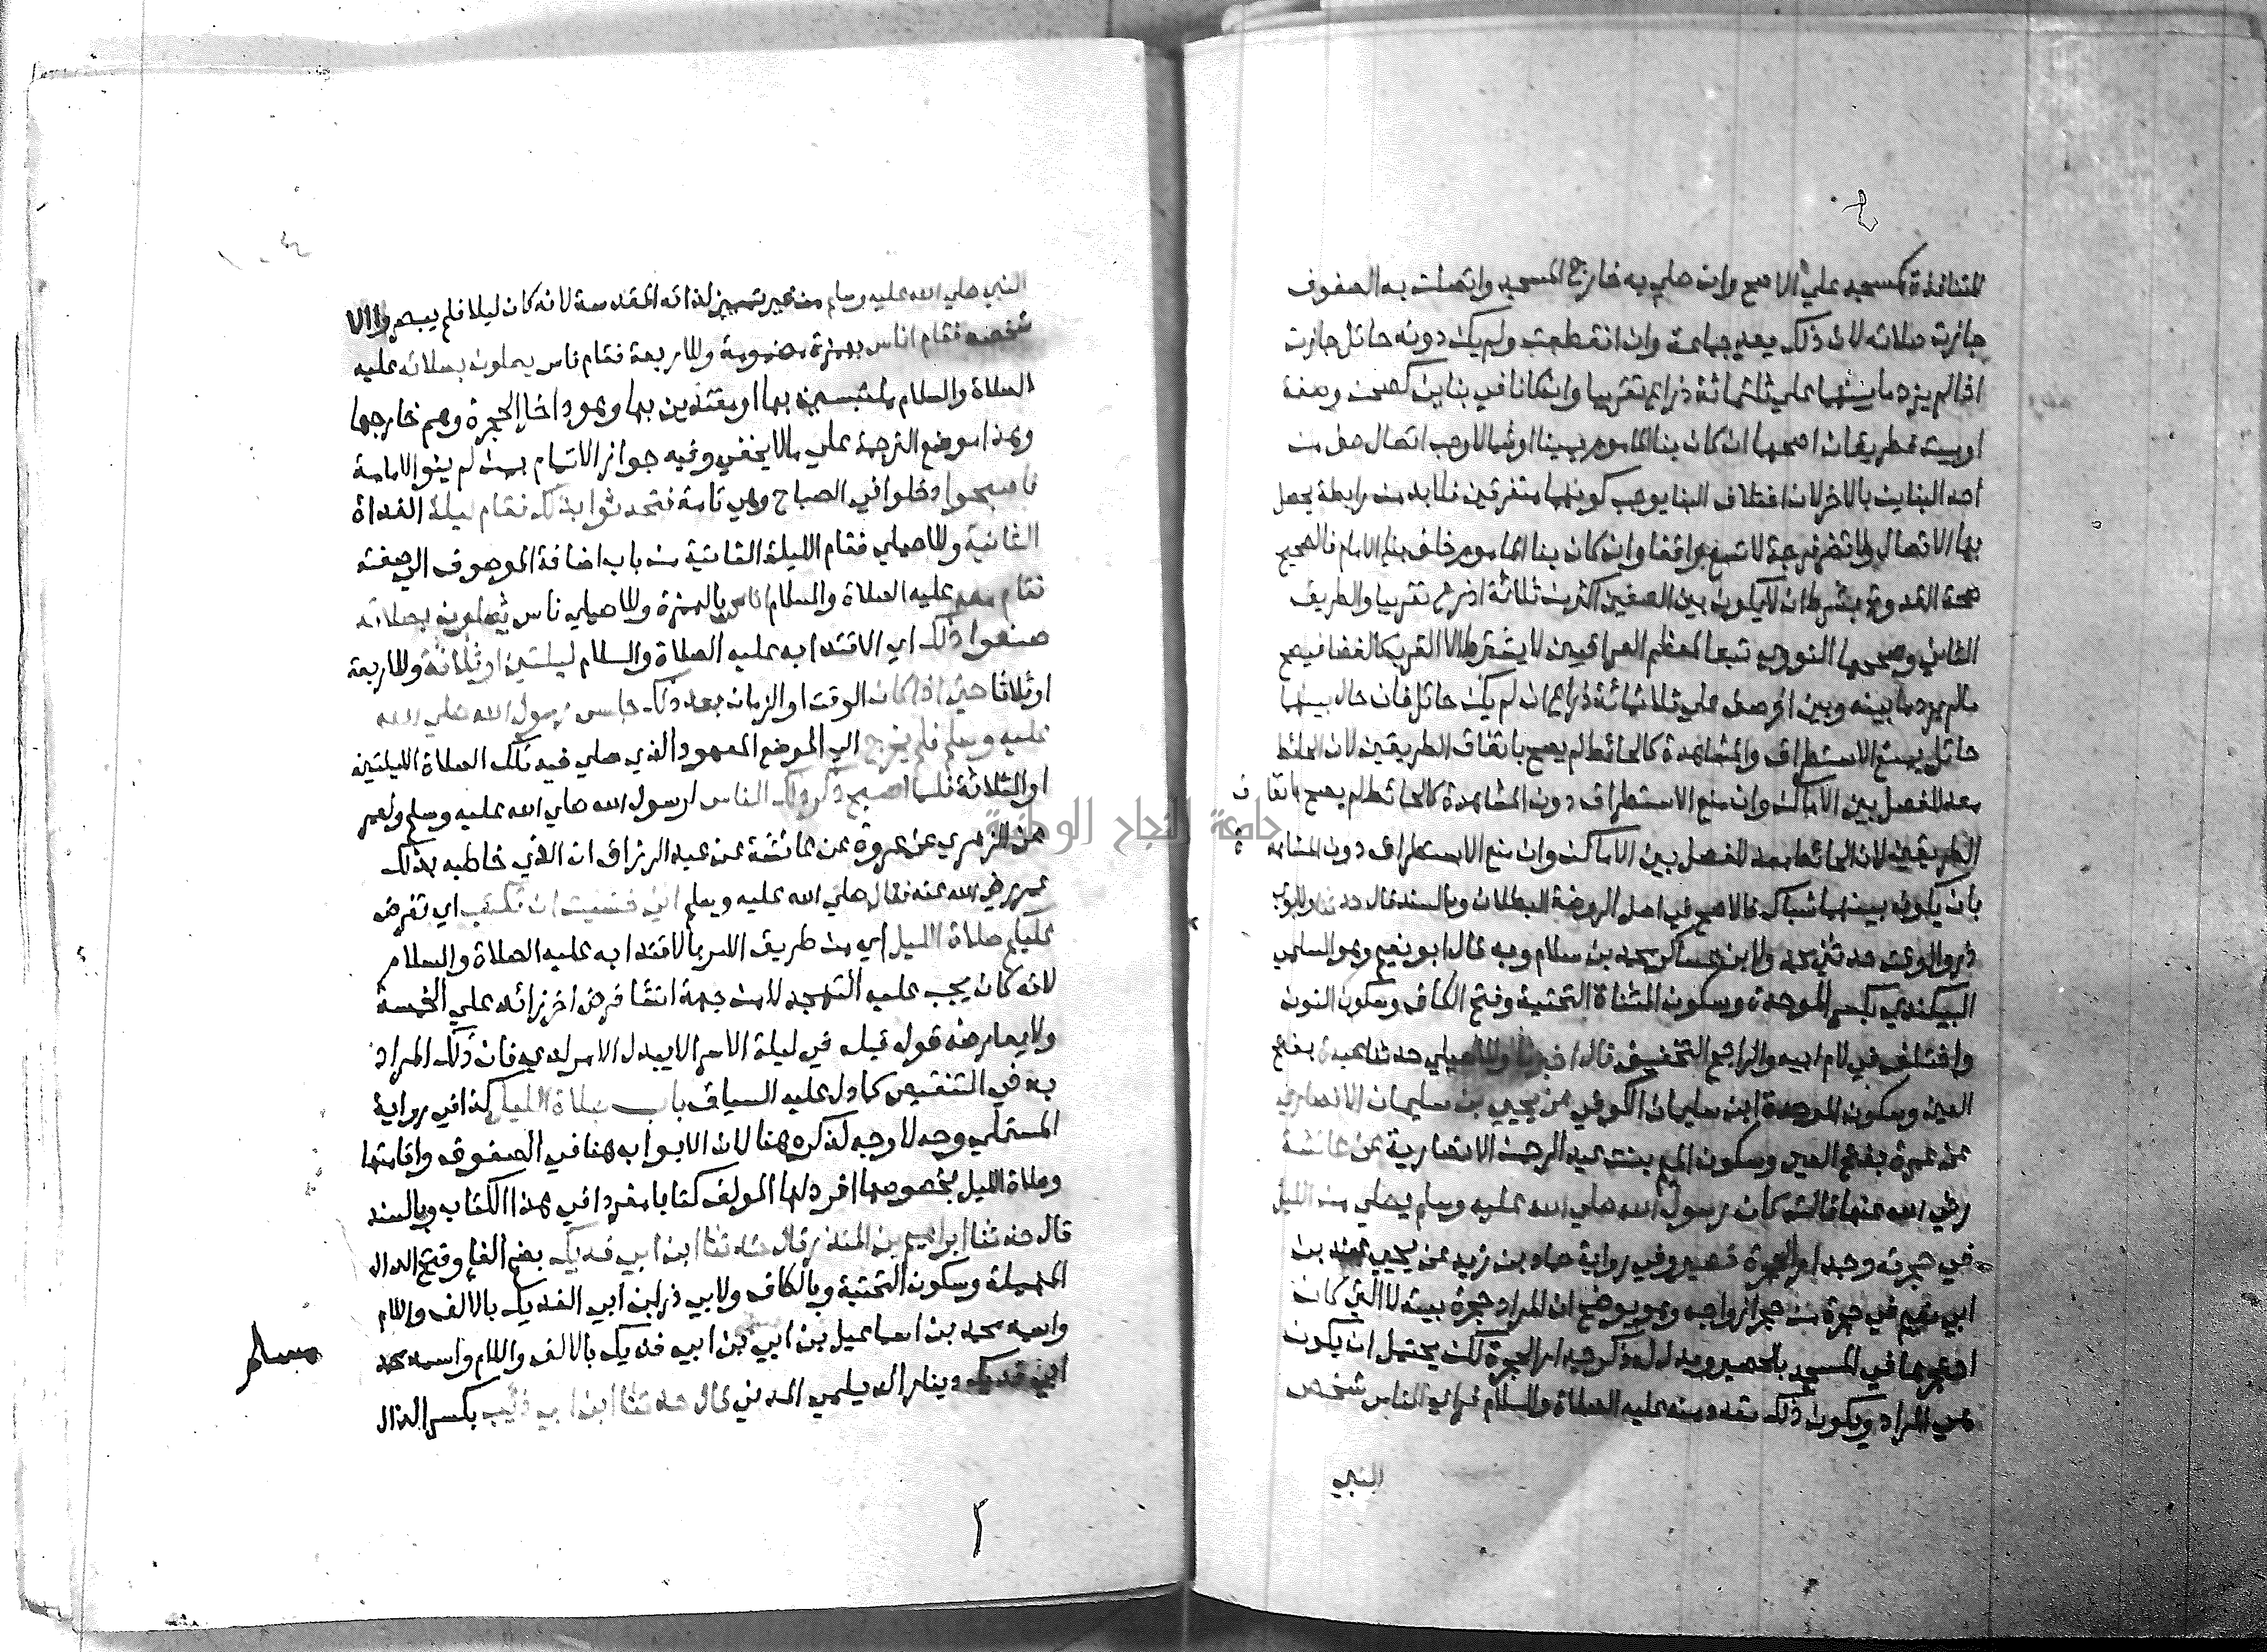 ٤
المتنافذة كمسجد علي الاصح وان صلي به خارج المسجد واتصلت به الصفوف
جازت صلاته لان ذلك يعد جماعة وان انقطعت ولم يكن دونه حائل جازت
اذا لم يزد ما بينهما علي ثلثمائة ذراع تقريبا وان كانا في بناين كصحن وصفة
او بيت فطريقان اصحهما ان كان بنا الماموم يمينا او شمالا وجب اتصال صف من
احد البناين بالاخر لان اختلاف البنا يوجب كونهما متفرقين فلا بد من رابطة يحصل
بها الاتصال ولا تضر فرجة لا تسع واقفا وان كان بنا الماموم خلف بنا الامام فالصحيح
صحة القدوة بشرط ان لا يكون بين الصفين اكثر من ثلاثة اذرع تقريبا والطريق
الثاني وصححها النووي تبعا لمعظم العراقيين لا يشترط الا القرب كالفضا فيصح
ما لم يزد ما بينه وبين اخر صف علي ثلاثمائة ذراع ان لم يكن حائل فان حال بينهما
حائل يمنع الاستطراق والمشاهدة كالحائط لم يصح باتفاق الطريقين لان الحائط
معد للفصل بين الاماكن وان منع الاستطراق دون المشاهدة كالحائط لم يصح باتفاق
الطريقين لان الحائط معد للفصل بين الاماكن وان منع الاستطراق دون المشاهدة
بان يكون بينهما شباك فالاصح في اصل الروضة البطلان وبالسند قال حدثنا ولابوي
ذر والوقت حدثني محمد ولابن عساكر محمد بن سلام وبه قال ابو نعيم وهو السلمي
البيكندي بكسر الموحدة وسكون المثناة التحتية وفتح الكاف وسكون النون
واختلف في لام ابيه والراجح التخفيف قال اخبرنا وللاصيلي حدثنا عبدة بفتح
العين وسكون الموحدة ابن سليمان الكوفي عن يحيي بن سليمان الانصاري
عن عمرة بفتح العين وسكون الميم بنت عبد الرحمن الانصارية عن عائشة
رضي الله عنها قالت كان رسول الله صلي الله عليه وسلم يصلي من الليل
في حجرته وجدار الحجرة قصير وفي رواية حماد بن زيد عن يحيي عند بن
ابي نعيم في حجرة من حجر ازواجه وهو يوضح ان المراد حجرة بيته لا التي كان
احتجرها في المسجد بالحصير ويدل له ذكر جدار الحجرة لكن يحتمل ان يكون
هي المراد ويكون ذلك تعدد منه عليه الصلاة والسلام فراي الناس شخص
النبي
النبي صلي الله عليه وسلم من غير تمييز لذاته المقدسة لانه كان ليلا فلم يبصروا الا
شخصه فقام اناس بهمزة مضمومة وللاربعة فقام ناس يصلون بصلاته عليه
الصلاة والسلام ملتبسين بها او مقتدين بها وهو داخل الحجرة وهم خارجها
وهذا موضع الترجمة علي ما لا يخفي وفيه جواز الائتمام بمن لم ينو الامامة
فاصبحوا دخلوا في الصباح وهي تامة فتحدثوا بذلك فقام ليلة الغداة
الثانية وللاصيلي فقام الليلة الثانية من باب اضافة الموصوف الي صفته
فقام معه عليه الصلاة والسلام اناس بالهمزة وللاصيلي ناس يصلون بصلاته
صنعوا ذلك اي الاقتدا به عليه الصلاة والسلام ليلتين او ثلاثة وللاربعة
او ثلاثا حتي اذا كان الوقت او الزمان بعد ذلك جلس رسول الله صلي الله
عليه وسلم فلم يخرج الي الموضع المعهود الذي صلي فيه تلك الصلاة الليلتين
او الثلاثة فلما اصبح ذكر ذلك الناس لرسول الله صلي الله عليه وسلم ولمعمر
عن الزهري عن عروة عن عائشة عن عبد الرزاق ان الذي خاطبه بذلك
عمر رضي الله عنه فقال صلي الله عليه وسلم اني خشيت ان تكتب اي تفرض
عليكم صلاة الليل اي من طريق الامر بالاقتدا به عليه الصلاة والسلام
لانه كان يجب عليه التهجد لا من جهة انشا فرض اخر زائد علي الخمسة
ولا يعارضه قوله قبل في ليلة الاسرا لا يبدل الامر لدي فان ذلك المراد
به في التنقيص كما دل عليه السياق باب صلاة الليل كذا في رواية
المستملي وحده لا وجه لذكره هنا لان الابواب هنا في الصفوف واقامتها
وصلاة الليل بخصوصها افرد لها المولف كتابا مفردا في هذا الكتاب وبالسند
قال حدثنا ابراهيم بن المنذر قال حدثنا ابن ابي فديك بضم الفا وفتح الدال
المهملة وسكون التحتية وبالكاف ولابي ذر ابن ابي الفديك بالالف واللام
واسمه محمد بن اسماعيل بن ابي بن ابيه فديك بالالف واللام واسمه محمد
ابي فديك دينار الديلمي المدني قال حدثنا ابن ابي ذئب بكسر الذال
مسلم
٢
جامعة النجاح الوطنية